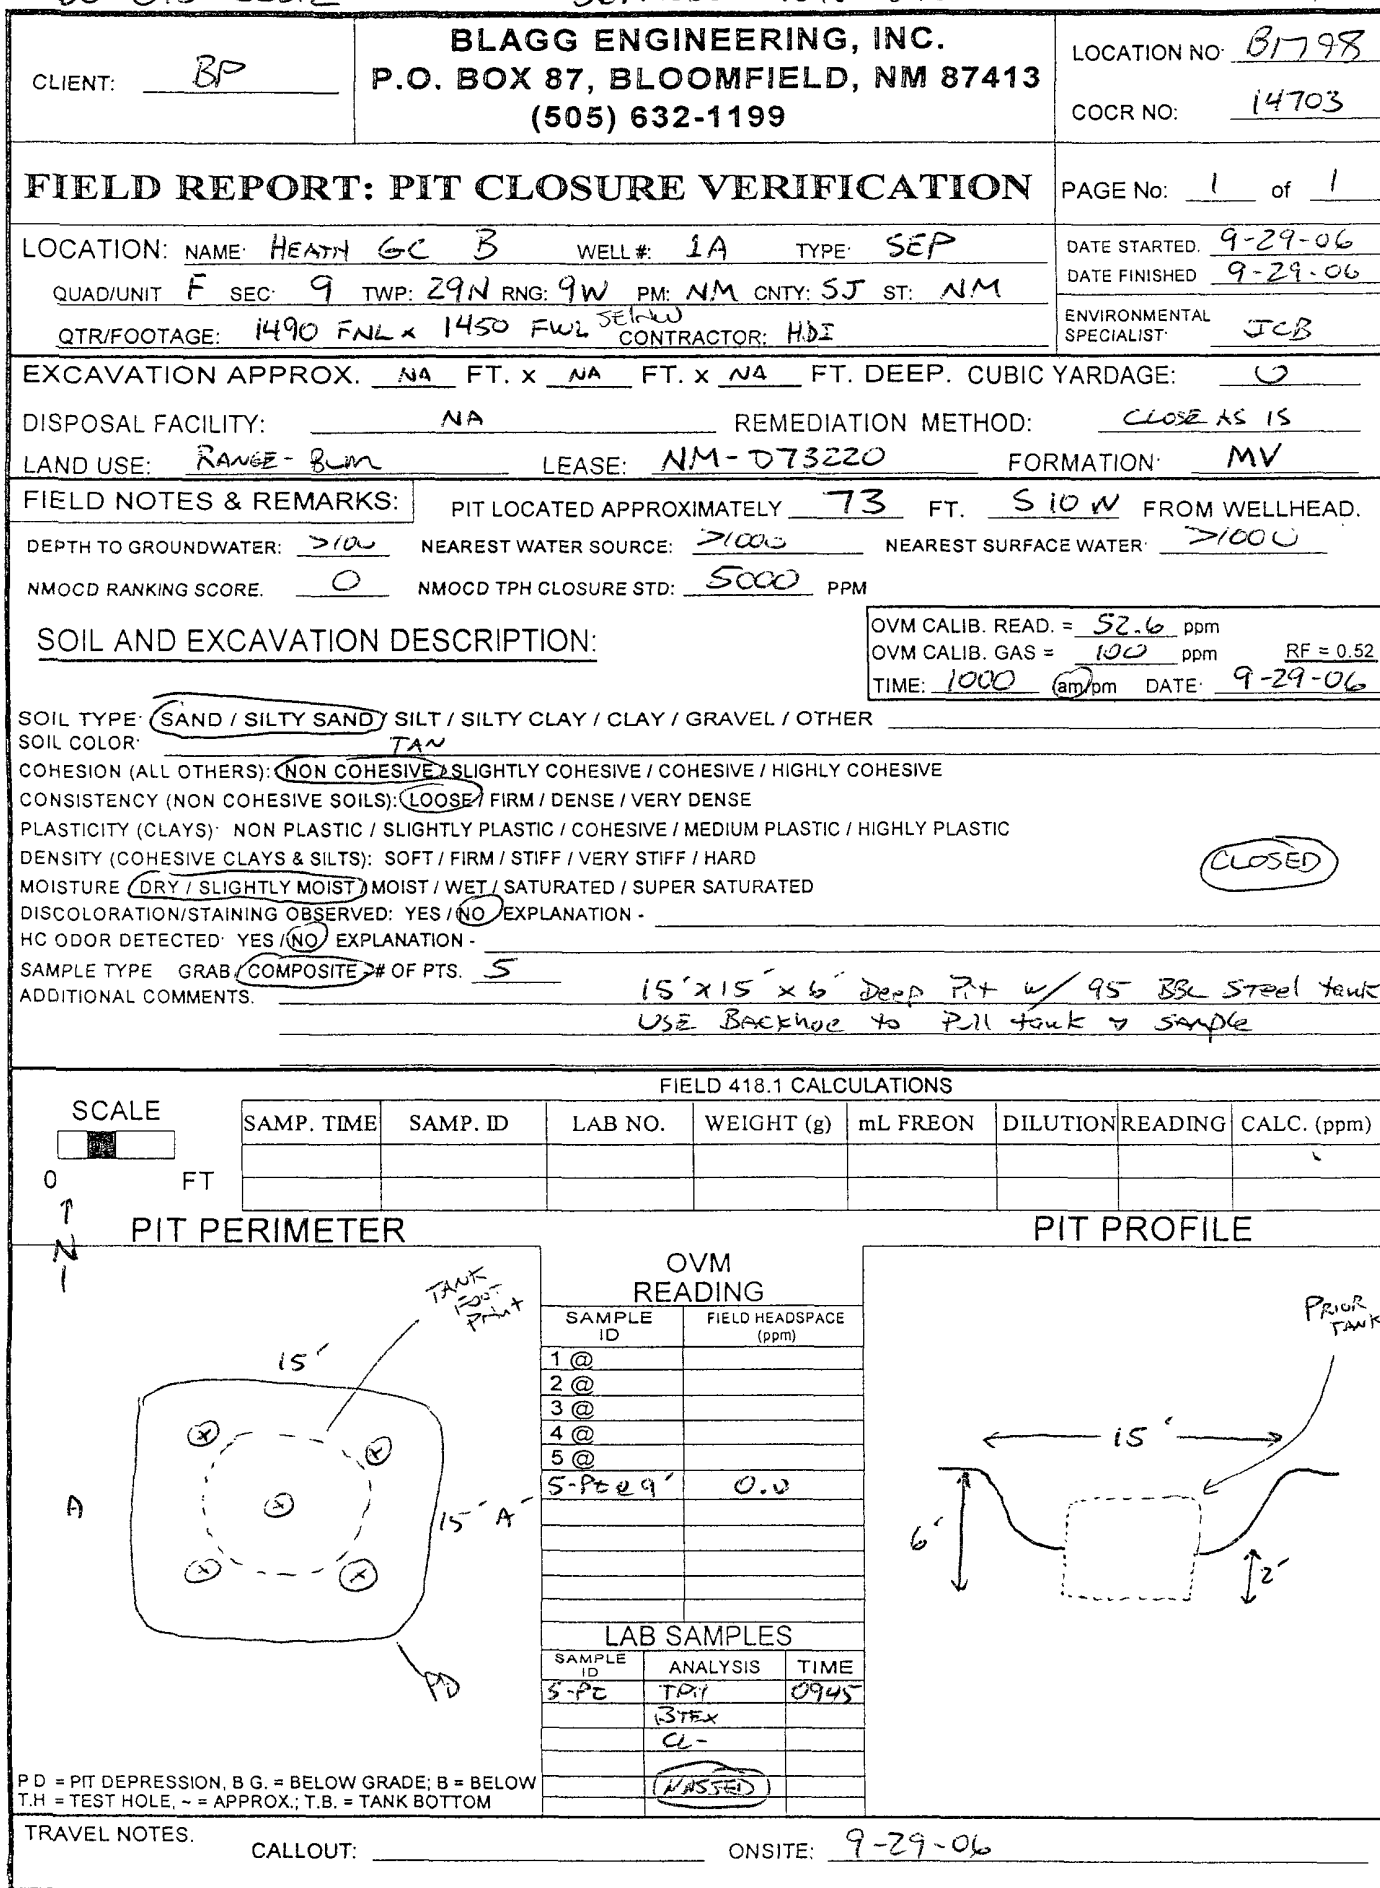 BLAGG ENGINEERING, INC.
CLIENT: BP
P.O. BOX 87, BLOOMFIELD, NM 87413
(505) 632-1199
LOCATION NO: B1798
COCR NO: 14703
FIELD REPORT: PIT CLOSURE VERIFICATION
PAGE No: 1 of 1
LOCATION: NAME: HEATH GC B WELL #: 1A TYPE: SEP
DATE STARTED. 9-29-06
DATE FINISHED 9-29-06
QUAD/UNIT F SEC: 9 TWP: 29N RNG: 9W PM: NM CNTY: SJ ST: NM
QTR/FOOTAGE: 1490 FNL x 1450 FWL SE/NW CONTRACTOR: HDI
ENVIRONMENTAL
SPECIALIST: JCB
EXCAVATION APPROX. NA FT. x NA FT. x NA FT. DEEP. CUBIC YARDAGE: 0
DISPOSAL FACILITY: NA REMEDIATION METHOD: CLOSE AS IS
LAND USE: RANGE - BLM LEASE: NM-073220 FORMATION: MV
FIELD NOTES & REMARKS: PIT LOCATED APPROXIMATELY 73 FT. S 10 W FROM WELLHEAD.
DEPTH TO GROUNDWATER: >100 NEAREST WATER SOURCE: >1000 NEAREST SURFACE WATER: >1000
NMOCD RANKING SCORE. 0 NMOCD TPH CLOSURE STD: 5000 PPM
SOIL AND EXCAVATION DESCRIPTION:
OVM CALIB. READ. = 52.6 ppm
OVM CALIB. GAS = 100 ppm RF = 0.52
TIME: 1000 am/pm DATE: 9-29-06
SOIL TYPE: SAND / SILTY SAND / SILT / SILTY CLAY / CLAY / GRAVEL / OTHER
SOIL COLOR: TAN
COHESION (ALL OTHERS): NON COHESIVE / SLIGHTLY COHESIVE / COHESIVE / HIGHLY COHESIVE
CONSISTENCY (NON COHESIVE SOILS): LOOSE / FIRM / DENSE / VERY DENSE
PLASTICITY (CLAYS): NON PLASTIC / SLIGHTLY PLASTIC / COHESIVE / MEDIUM PLASTIC / HIGHLY PLASTIC
DENSITY (COHESIVE CLAYS & SILTS): SOFT / FIRM / STIFF / VERY STIFF / HARD
CLOSED
MOISTURE DRY / SLIGHTLY MOIST / MOIST / WET / SATURATED / SUPER SATURATED
DISCOLORATION/STAINING OBSERVED: YES / NO EXPLANATION -
HC ODOR DETECTED: YES / NO EXPLANATION -
SAMPLE TYPE GRAB / COMPOSITE # OF PTS. 5
ADDITIONAL COMMENTS. 15' x 15' x 6' Deep Pit w/ 95 BBL Steel tank
USE Backhoe to Pull tank & sample
FIELD 418.1 CALCULATIONS
SCALE
0 FT
SAMP. TIME SAMP. ID LAB NO. WEIGHT (g) mL FREON DILUTION READING CALC. (ppm)
N
PIT PERIMETER
PIT PROFILE
TANK
Foot
Print
15'
A
15' A'
PD
OVM
READING
SAMPLE ID FIELD HEADSPACE (ppm)
1 @
2 @
3 @
4 @
5 @
5-Pt @ 9' 0.0
LAB SAMPLES
SAMPLE ID ANALYSIS TIME
5-Pt TPH 0945
BTEX
CL-
PASSED
PRIOR
TANK
15'
6'
2'
P D = PIT DEPRESSION, B G. = BELOW GRADE; B = BELOW
T.H = TEST HOLE, ~ = APPROX.; T.B. = TANK BOTTOM
TRAVEL NOTES.
CALLOUT: ONSITE: 9-29-06